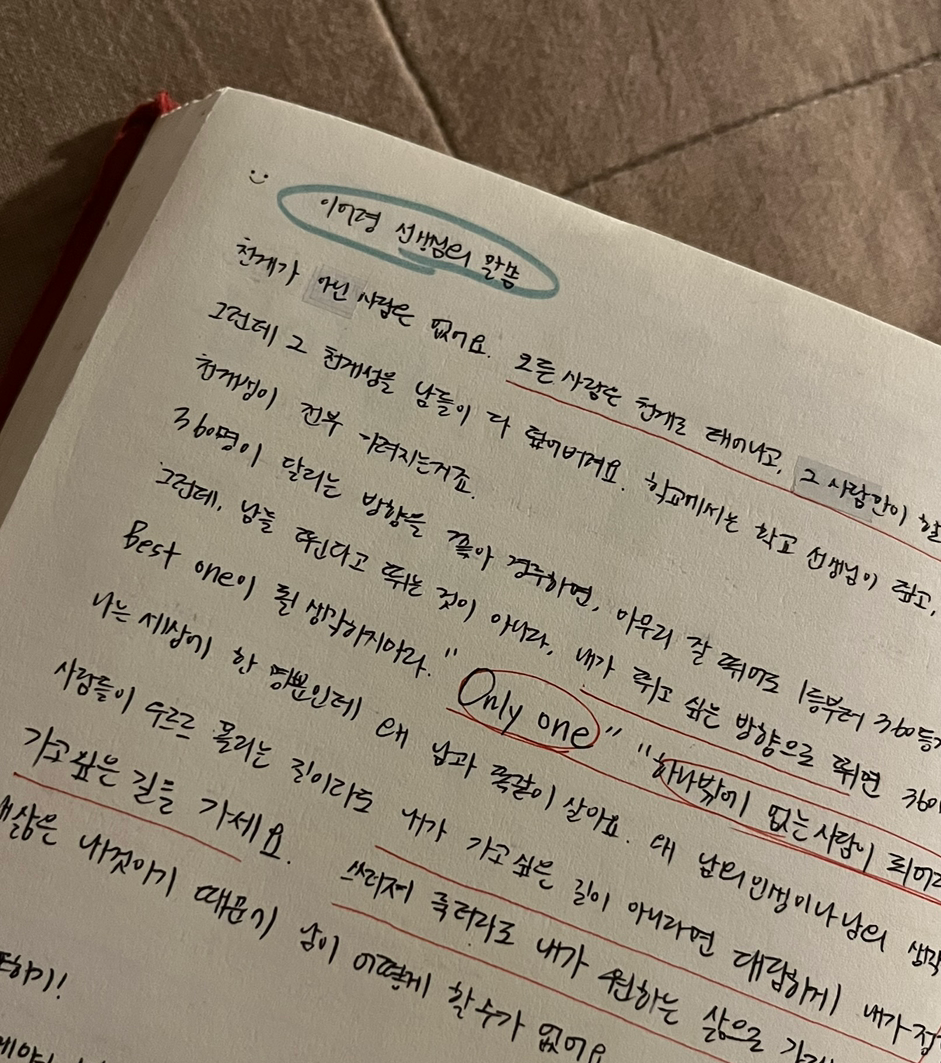 이어령 선생님의 말씀
천재가 아닌 사람은 없어요. 모든 사람은 천재로 태어나고, 그 사람만이 할
그런데 그 천재성을 남들이 다 덮어버려요. 학교에서는 학교 선생님이 덮고,
천재성이 전부 가려지는거죠.
360명이 달리는 방향을 쫓아 경주하면, 아무리 잘 뛰어도 1등부터 360등까
그런데, 남들 뛴다고 뛰는 것이 아니라, 내가 뛰고 싶은 방향으로 뛰면
Best one이 될 생각하지마라. " Only one " "하나밖에 없는 사람이 되어라
나는 세상에 한 명뿐인데 왜 남과 똑같이 살아요. 왜 남의 인생이나 남의 생각
사람들이 우르르 몰리는 길이라도 내가 가고 싶은 길이 아니라면 대담하게 내가 정
가고싶은 길을 가세요. 쓰러져 죽더라도 내가 원하는 삶으로
내삶은 내것이기 때문에 남이 어떻게 할수가 없어요
하기!